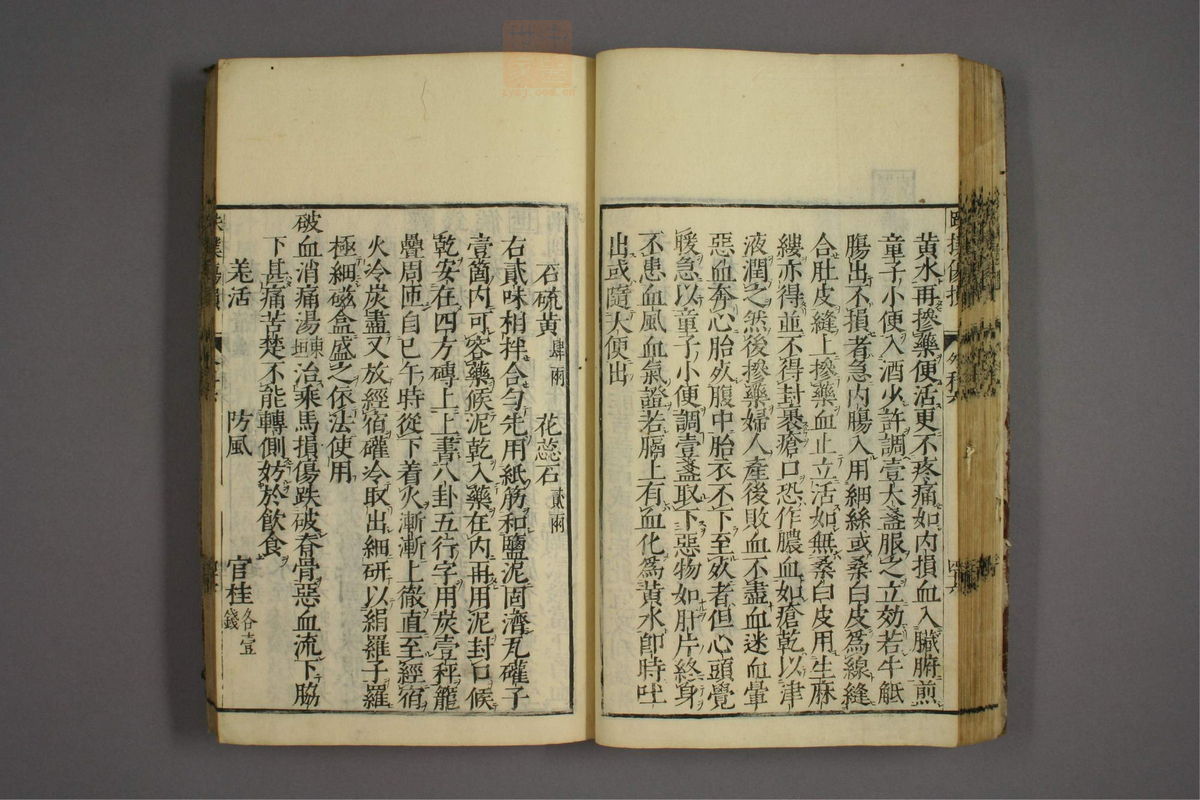 黃水再摻藥便活更不疼痛如內損血入臟腑煎
童子小便入酒少許調壹大盞服之立効若牛觝
腸出不損者急內腸入用細絲或桑白皮爲線縫
合肚皮縫上摻藥血止立活如無桑白皮用生麻
縷亦得並不得封裹瘡口恐作膿血如瘡乾以津
液潤之然後摻藥婦人產後敗血不盡血迷血暈
惡血奔心胎死腹中胎衣不下至死者但心頭覺
暖急以童子小便調壹盞取下惡物如肝片終身
不患血風血氣證若膈上有血化爲黃水卽時吐
出或隨大便出
石硫黃肆兩 花蕊石貳兩
右貳味相拌合勻先用紙筋和鹽泥固濟瓦礶子
壹箇內可容藥候泥乾入藥在內再用泥封口候
乾安在四方磚上上書八卦五行字用炭壹秤籠
疊周匝自巳午時從下着火漸漸上徹直至經宿
火冷炭盡又放經宿礶冷取出細研以絹羅子羅
極細磁盒盛之依法使用
破血消痛湯東垣治乘馬損傷跌破脊骨惡血流下脇
下甚痛苦楚不能轉側妨於飲食
羌活 防風 官桂各壹錢